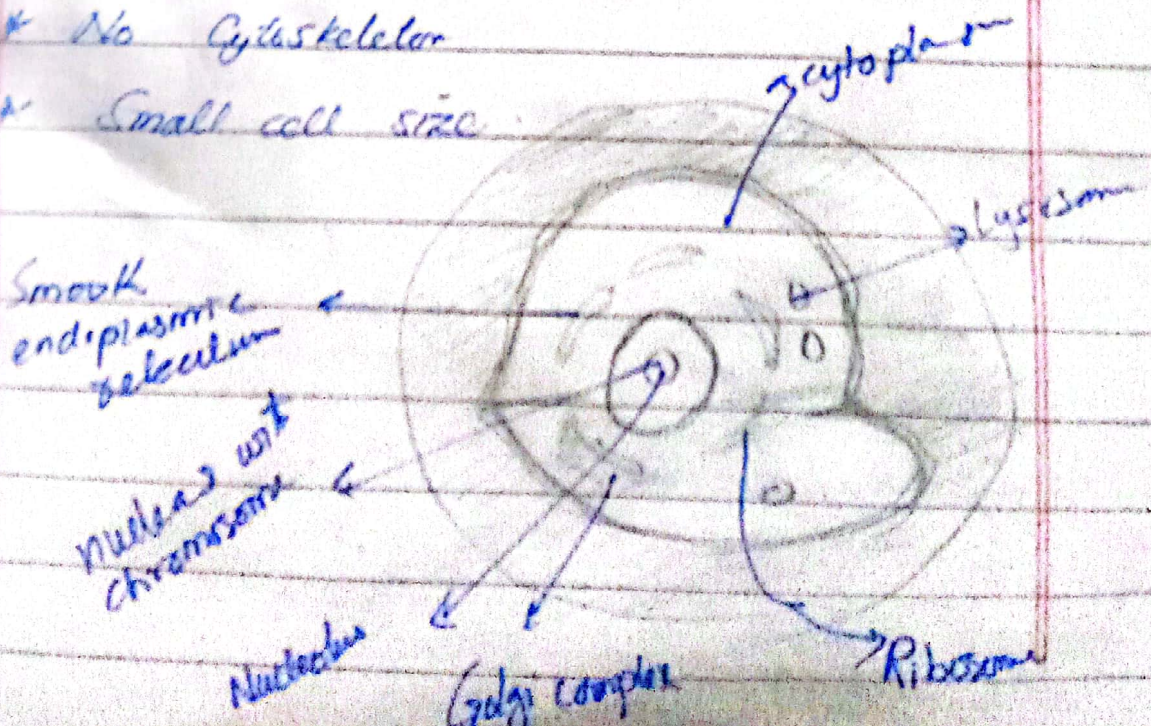 * No Cytoskeleton
* Small cell size
cytoplasm
Lysosom
Smooth
endoplasmic
reticulum
nucleas with
chromosome
Nucleolus
Golgi complex
Ribosome